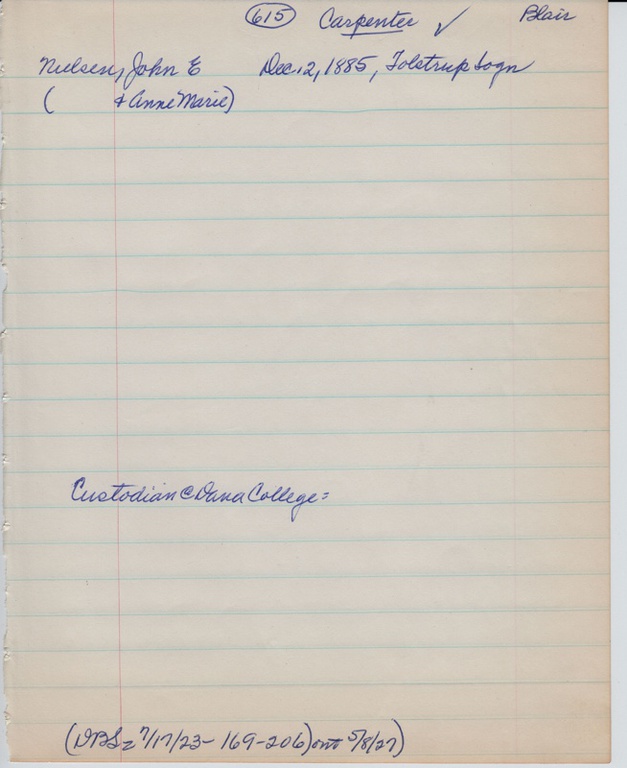 615 Carpenter ✓ Blair
Nielsen, John E Dec. 2, 1885, Tolstrup Sogn
( & Anne Marie)
Custodian @ Dana College:
(DBS z 7/17/23 - 169-206) out 5/8/27)